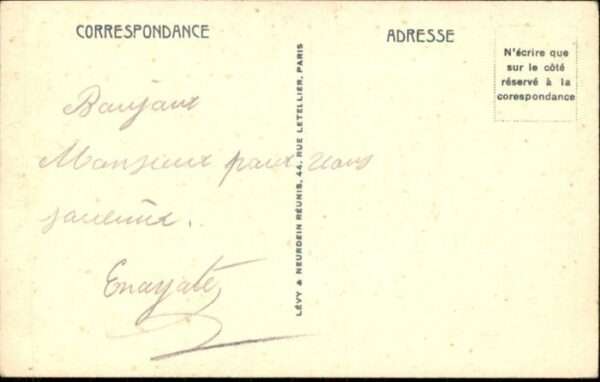 CORRESPONDANCE
ADRESSE
N'écrire que
sur le côté
réservé à la
corespondance
Bonjour
Monsieur pour vous
LÉVY & NEURDEIN RÉUNIS, 44, RUE LETELLIER, PARIS